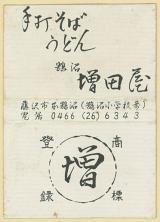 手打そば
うどん
鵠沼
増田屋
藤沢市本鵠沼(鵠沼小学校前)
電話 0466 (26) 6343
登録
増
商標